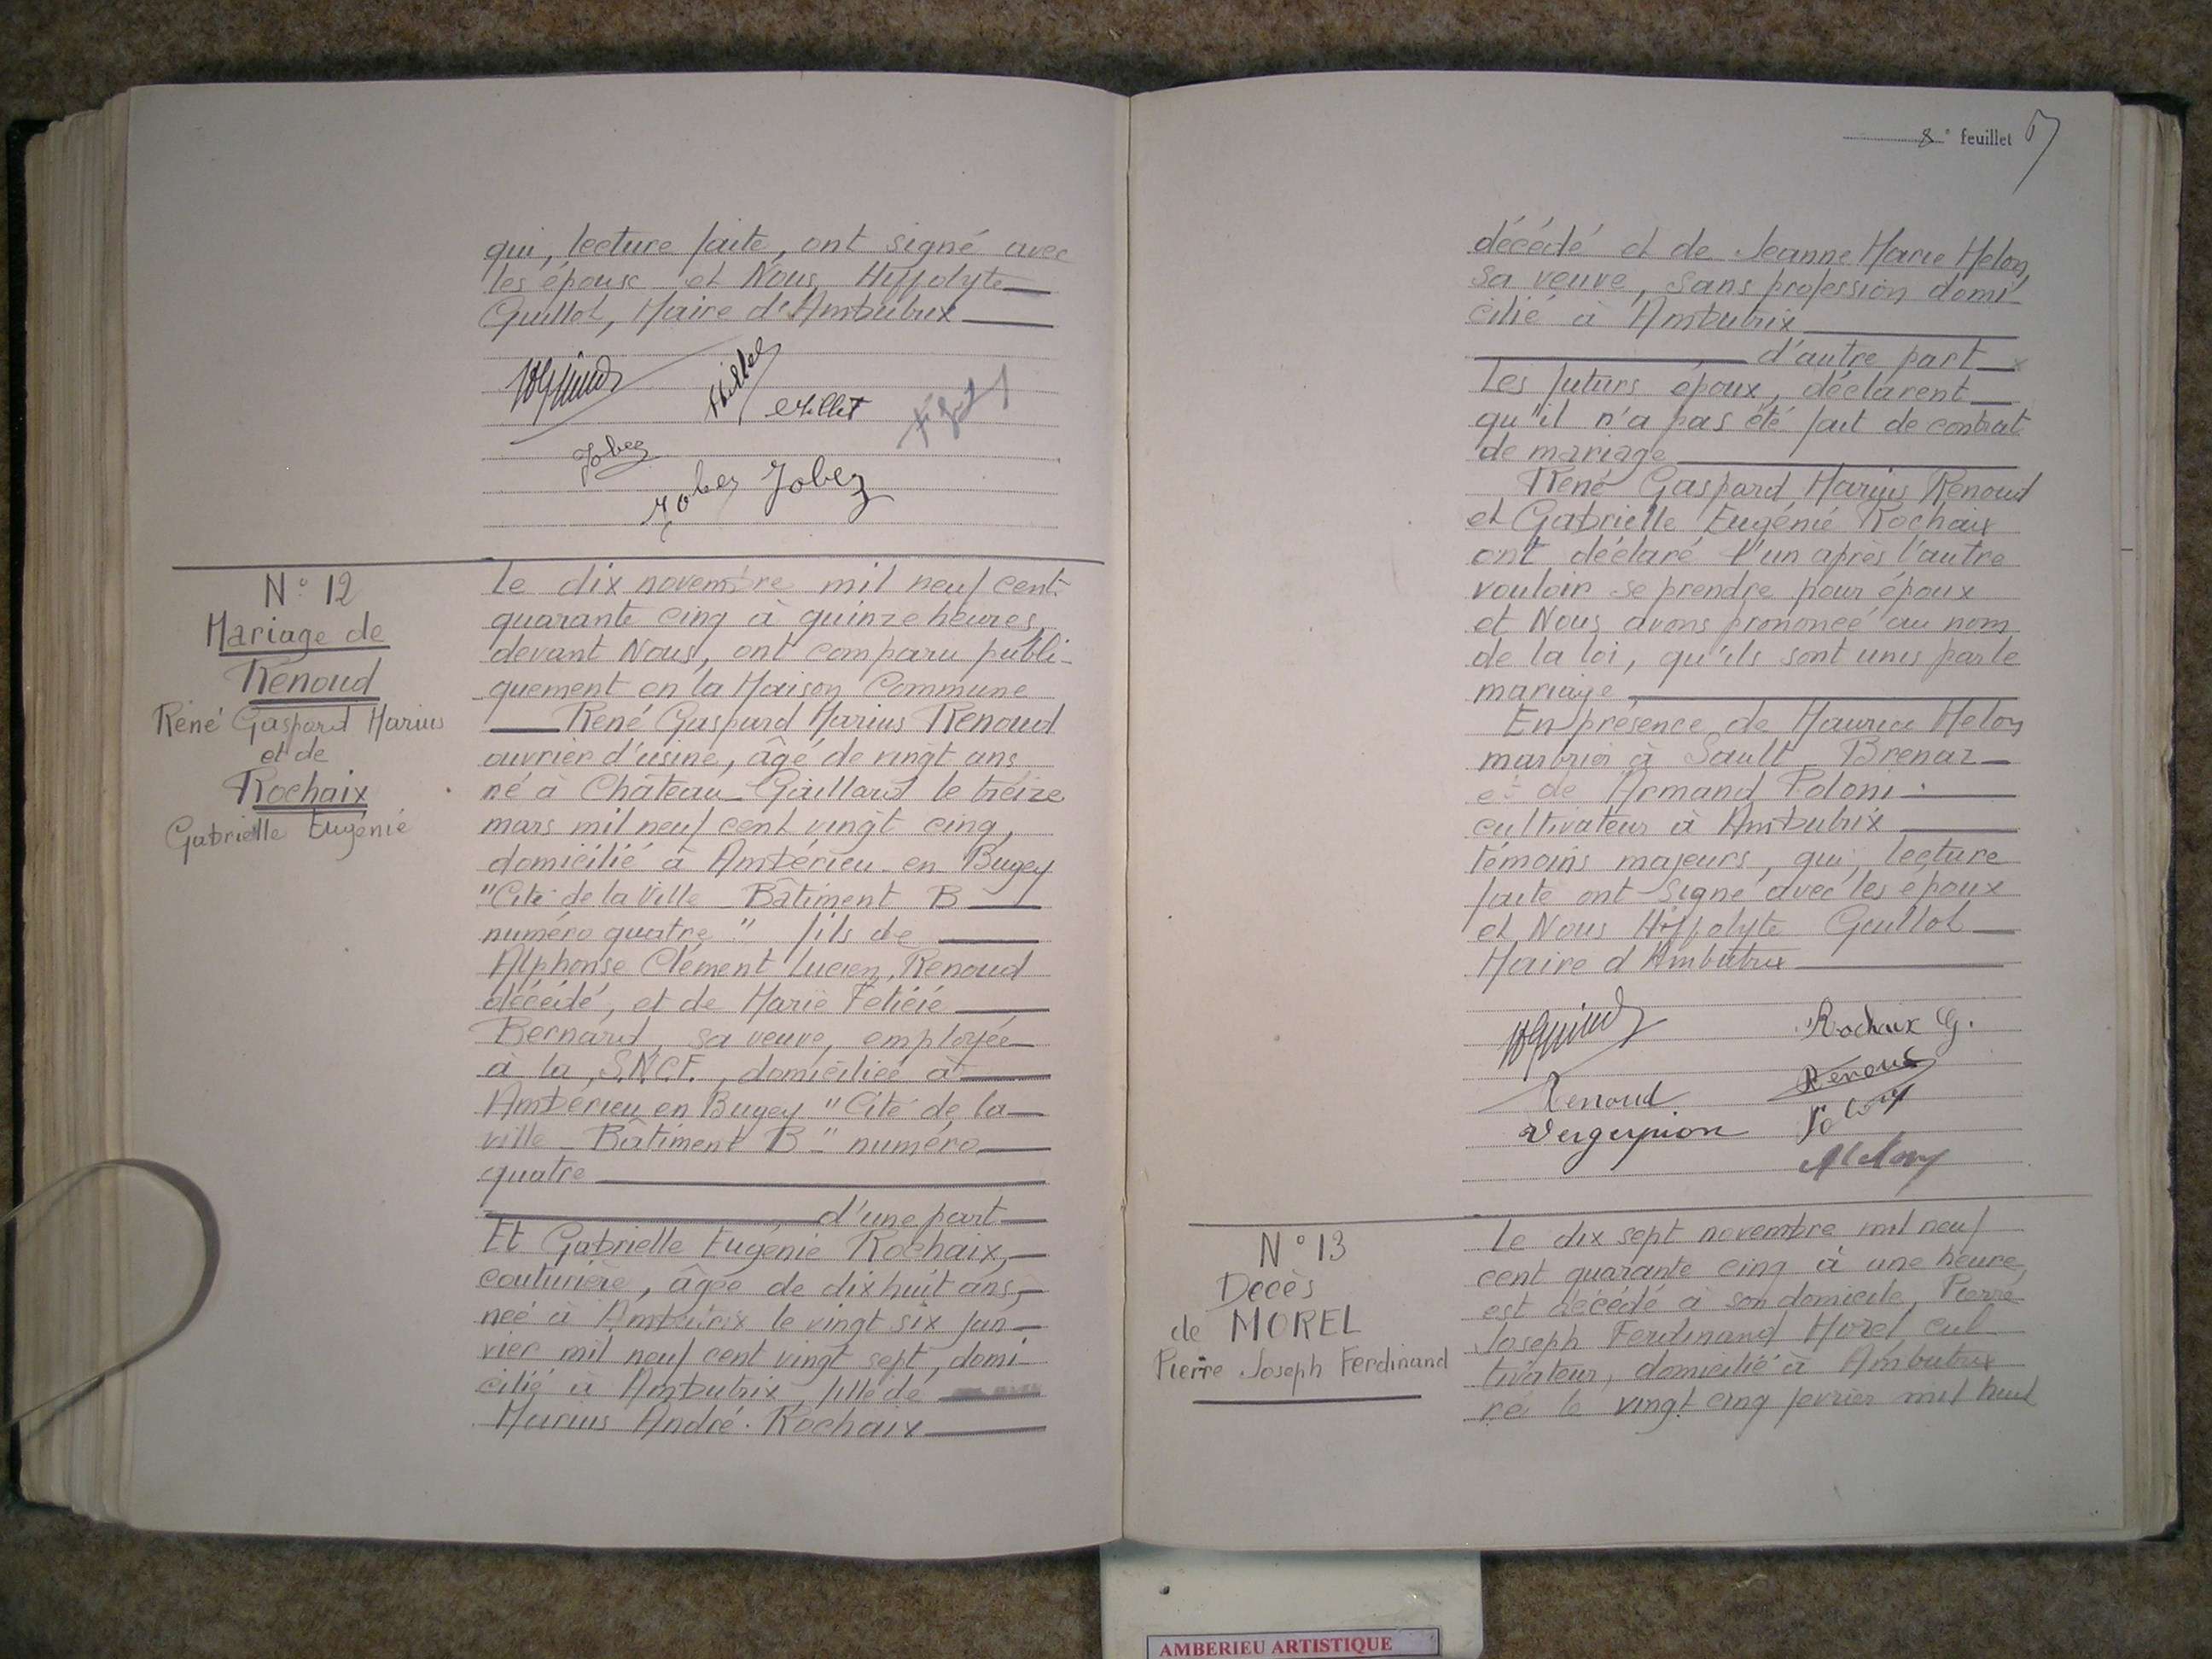 qui, lecture faite, ont signé avec
les épouse et Nous Hippolyte
Guillot, Maire d'Ambutrix
Millet
Jobez
Jobez Jobez
N° 12
Mariage de
Renoud
René Gaspard Marius
et de
Rochaix
Gabrielle Eugénie
Le dix novembre mil neuf cent
quarante cinq à quinze heures,
devant Nous, ont comparu publi-
quement en la Maison Commune
René Gaspard Marius Renoud
ouvrier d'usine, âgé de vingt ans
né à Château-Gaillard le treize
mars mil neuf cent vingt cinq,
domicilié à Ambérieu en Bugey
"Cité de la Ville - Bâtiment B
numéro quatre" fils de
Alphonse Clément Lucien Renoud
décédé, et de Marie Félicie
Bernard, sa veuve, employée
à la S.N.C.F., domiciliée à
Ambérieu en Bugey "Cité de la
ville - Bâtiment B" numéro
quatre
d'une part
Et Gabrielle Eugénie Rochaix,
couturière, âgée de dix huit ans,
née à Ambutrix le vingt six jan-
vier mil neuf cent vingt sept, domi-
cilié à Ambutrix, fille de
Marius André Rochaix
8e feuillet
décédé et de Jeanne Marie Melon,
sa veuve, sans profession domi-
cilié à Ambutrix
d'autre part
Les futurs époux, déclarent
qu'il n'a pas été fait de contrat
de mariage
René Gaspard Marius Renoud
et Gabrielle Eugénie Rochaix
ont déclaré l'un après l'autre
vouloir se prendre pour époux
et Nous avons prononcé au nom
de la loi, qu'ils sont unis par le
mariage
En présence de Maurice Melon
marbrier à Sault Brenaz
et de Armand Poloni
cultivateur à Ambutrix
témoins majeurs, qui, lecture
faite ont signé avec les époux
et Nous Hippolyte Guillot
Maire d'Ambutrix
Rochaix G.
Renoud Renoud
Vergnion
N° 13
Décès
de MOREL
Pierre Joseph Ferdinand
Le dix sept novembre mil neuf
cent quarante cinq à une heure,
est décédé à son domicile, Pierre
Joseph Ferdinand Morel, cul
tivateur, domicilié à Ambutrix
né le vingt cinq fevrier mil huit
AMBERIEU ARTISTIQUE